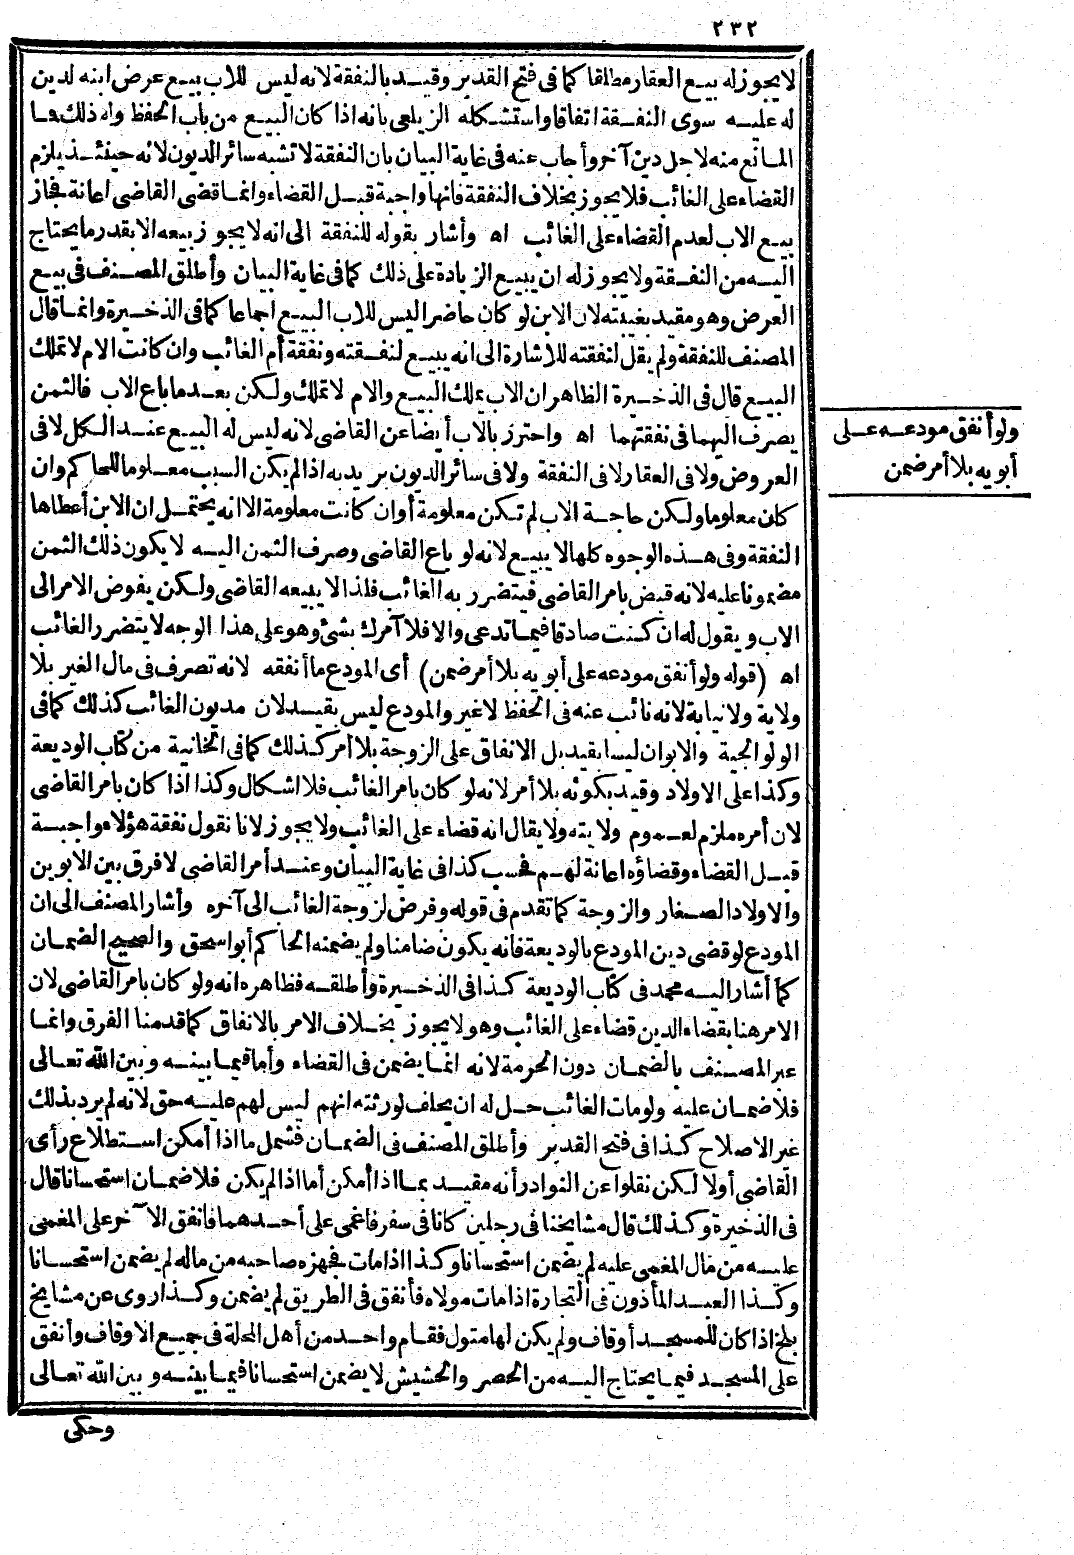 ٢٣٢
لا يجوز له بيع العقار مطلقا كما في فتح القدير وقيد بالنفقة لانه ليس للاب بيع عرض ابنه لدين
له عليه سوى النفقة اتفاقا واستشكله الزيلعي بانه اذا كان البيع من باب الحفظ وله ذلك فما
المانع منه لاجل دين آخر وأجاب عنه في غاية البيان بان النفقة لا تشبه سائر الديون لانه حينئذ يلزم
القضاء على الغائب فلا يجوز بخلاف النفقة فانها واجبة قبل القضاء وانما قضى القاضي اعانة فجاز
بيع الاب لعدم القضاء على الغائب اه وأشار بقوله للنفقة الى انه لا يجوز بيعه الا بقدر ما يحتاج
اليه من النفقة ولا يجوز له ان يبيع الزيادة على ذلك كما في غاية البيان وأطلق المصنف في بيع
العرض وهو مقيد بغيبته لان الابن لو كان حاضرا ليس للاب البيع اجماعا كما في الذخيرة وانما قال
المصنف للنفقة ولم يقل لنفقته للاشارة الى انه يبيع لنفقته ونفقة أم الغائب وان كانت الام لا تملك
البيع قال في الذخيرة الظاهر ان الاب يملك البيع والام لا تملك ولكن بعد ما باع الاب فالثمن
يصرف اليهما في نفقتهما اه واحترز بالاب أيضا عن القاضي لانه ليس له البيع عند الكل لا في
العروض ولا في العقار لا في النفقة ولا في سائر الديون يريد به اذا لم يكن السبب معلوما للحاكم وان
كان معلوما ولكن حاجة الاب لم تكن معلومة أو ان كانت معلومة الا انه يحتمل ان الابن أعطاها
النفقة وفي هذه الوجوه كلها لا يبيع لانه لو باع القاضي وصرف الثمن اليه لا يكون ذلك الثمن
مضمونا عليه لانه قبض بامر القاضي فيتضرر به الغائب فلذا لا يبيعه القاضي ولكن يفوض الامر الى
الاب ويقول له ان كنت صادقا فيما تدعي والا فلا آمرك بشئ وهو على هذا الوجه لا يتضرر الغائب
اه (قوله ولو أنفق مودعه على أبويه بلا أمر ضمن) أى المودع ما أنفقه لانه تصرف في مال الغير بلا
ولاية ولا نيابة لانه نائب عنه في الحفظ لا غير والمودع ليس بقيد لان مديون الغائب كذلك كما في
الولوالجية والابوان ليسا بقيد بل الانفاق على الزوجة بلا أمر كذلك كما في الخانية من كتاب الوديعة
وكذا على الاولاد وقيد بكونه بلا أمر لانه لو كان بامر الغائب فلا اشكال وكذا اذا كان بامر القاضي
لان أمره ملزم لعموم ولايته ولا يقال انه قضاء على الغائب ولا يجوز لانا نقول نفقة هؤلاء واجبة
قبل القضاء وقضاؤه اعانة لهم فحسب كذا في غاية البيان وعند أمر القاضي لا فرق بين الابوين
والاولاد الصغار والزوجة كما تقدم في قوله وفرض لزوجة الغائب الى آخره وأشار المصنف الى ان
المودع لو قضى دين المودع بالوديعة فانه يكون ضامنا ولم يضمنه الحاكم أبو اسحق والصحيح الضمان
كما أشار اليه محمد في كتاب الوديعة كذا في الذخيرة وأطلقه فظاهره انه ولو كان بامر القاضي لان
الامر هنا بقضاء الدين قضاء على الغائب وهو لا يجوز بخلاف الامر بالانفاق كما قدمنا الفرق وانما
عبر المصنف بالضمان دون الحرمة لانه انما يضمن في القضاء وأما فيما بينه وبين الله تعالى
فلا ضمان عليه ولو مات الغائب حل له ان يحلف لورثته انهم ليس لهم عليه حق لانه لم يرد بذلك
غير الاصلاح كذا في فتح القدير وأطلق المصنف في الضمان فشمل ما اذا أمكن استطلاع رأى
القاضي أولا لكن نقلوا عن النوادر أنه مقيد بما اذا أمكن أما اذا لم يكن فلا ضمان استحسانا قال
في الذخيرة وكذلك قال مشايخنا في رجلين كانا في سفر فاغمى على أحدهما فانفق الآخر على المغمى
عليه من مال المغمى عليه لم يضمن استحسانا وكذا اذا مات فجهزه صاحبه من ماله لم يضمن استحسانا
وكذا العبد المأذون في التجارة اذا مات مولاه فأنفق في الطريق لم يضمن وكذا روى عن مشايخ
بلخ اذا كان للمسجد أوقاف ولم يكن لها متول فقام واحد من أهل المحلة في جميع الاوقاف وأنفق
على المسجد فيما يحتاج اليه من الحصر والحشيش لا يضمن استحسانا فيما بينه وبين الله تعالى
وحكى
ولو أنفق مودعه على
أبويه بلا أمر ضمن